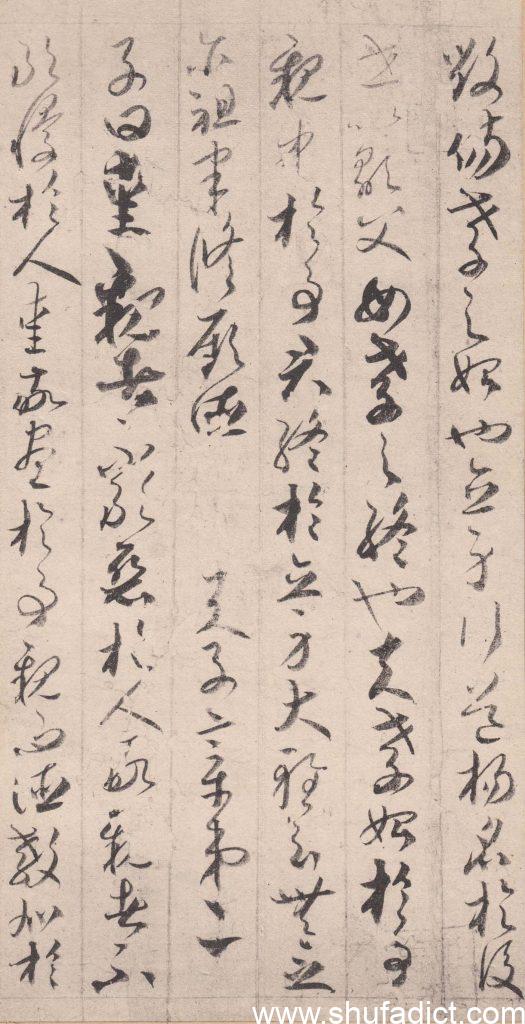 毀傷孝之始也立身行道揚名於後
世以顯父母孝之終也夫孝始於事
親中於事君終於立身大雅云無念
尒祖聿脩厥德　天子章第二
子曰愛親者不敢惡於人敬親者不
敢慢於人愛敬盡於事親而德教加於
www.shufadict.com